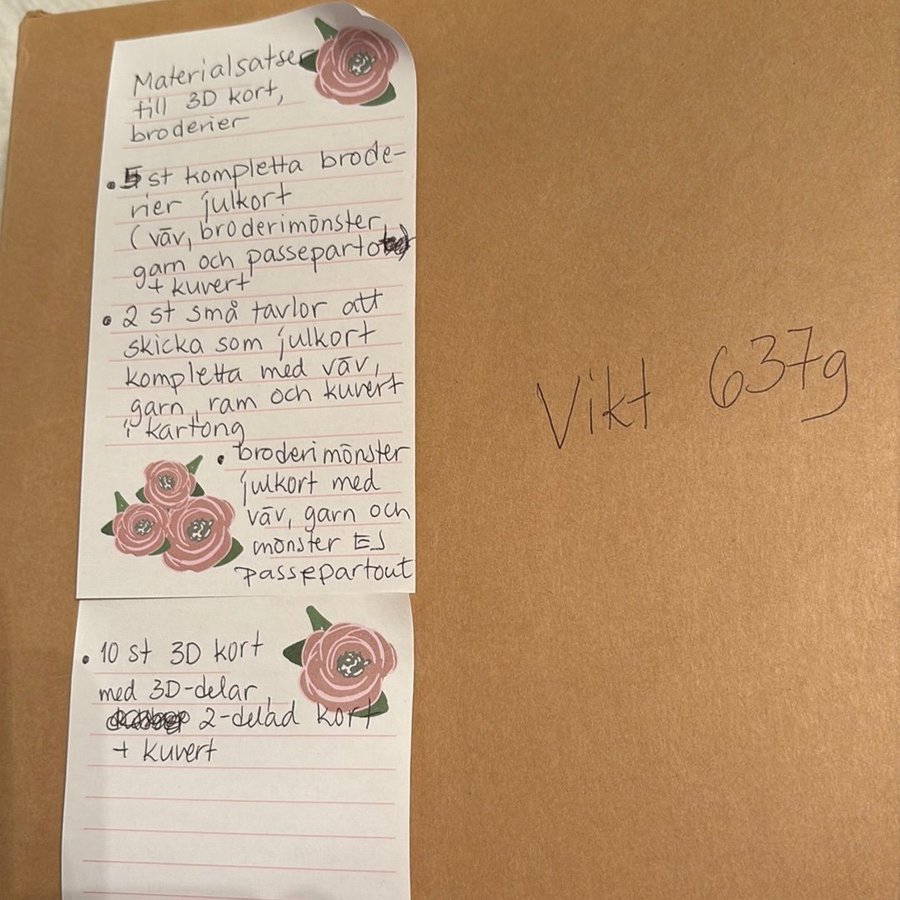 Materialsatser
till 3D kort,
broderier
• 5 st kompletta brode-
rier julkort
(väv, broderimönster
garn och passeparto
+ kuvert
• 2 st små tavlor att
skicka som julkort
kompletta med väv,
garn, ram och kuvert
i kartong
• broderimönster
julkort med
väv, garn och
mönster EJ
passepartout
• 10 st 3D kort
med 3D-delar,
2-delad kort
+ kuvert
Vikt 637g